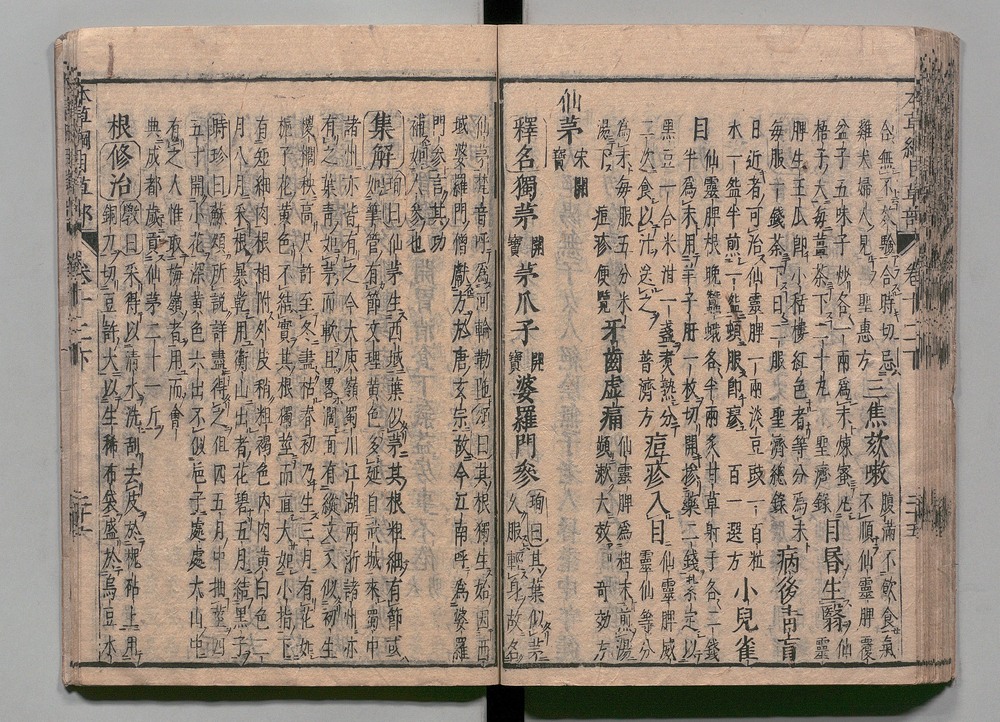 合無不效驗合時切忌三焦欬嗽腹滿不飲食氣
雞犬婦人見聖惠方不順仙靈脾覆
盆子五味子炒各一兩爲末煉蜜丸目昏生翳仙
梧子大每薑茶下二十丸聖濟錄
脾生王瓜即小栝樓紅色者等分爲末病後青盲
每服一錢茶下日二服聖濟總錄
日近者可治仙靈脾一兩淡豆豉一百粒小兒雀
水一盌半煎一盌頓服即瘳百一選方
目仙靈脾根晚蠶蛾各半兩炙甘草射干各二錢
半爲末用羊子肝一枚切開摻藥二錢紮定以
黑豆一合米泔一盞煮熟分痘疹入目仙靈脾威
二次食以汁送之普濟方靈仙等分
爲末每服五分米牙齒虛痛仙靈脾爲粗末煎湯
湯下痘疹便覽頻漱大效奇效方
仙茅宋開寶
釋名獨茅開寶茅爪子開寶婆羅門參珣曰其葉似茅久服輕身故名
仙茅梵音呼爲河輪勒陁頌曰其根獨生始因西
域婆羅門僧獻方於唐玄宗故今江南呼爲婆羅
門參言其功
補如人參也
集解珣曰仙茅生西域葉似茅其根粗細有節或
如筆管有節文理黃色多延自武城來蜀中
諸州亦皆有之今大庾嶺蜀川江湖兩浙諸州亦
有之葉青如茅而軟且略闊面有縱文又似初生
椶櫚秧高尺許至冬盡枯春初乃生三月有花如
梔子花黃色不結實其根獨莖而直大如小指下
有短細肉根相附外皮稍粗褐色內肉黃白色二
月八月采根暴乾用衡山出者花碧五月結黑子
時珍曰蘇頌所說詳盡得之但四五月中抽莖四
五寸開小花深黃色六出不似梔子處處大山中
有之人惟取梅嶺者用而會
典成都歲貢仙茅二十一斤
根修治斅曰采得以清水洗刮去皮於槐砧上用
銅刀切豆許大以生稀布袋盛於烏豆水
本草綱目草部 卷十二下